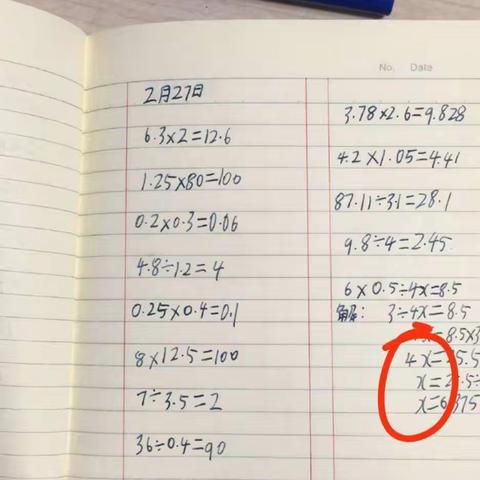 No. Date
2月27日
6.3×2=12.6
1.25×80=100
0.2×0.3=0.06
4.8÷1.2=4
0.25×0.4=0.1
8×12.5=100
7÷3.5=2
36÷0.4=90
3.78×2.6=9.828
4.2×1.05=4.41
87.11÷3.1=28.1
9.8÷4=2.45
6×0.5÷4x=8.5
解: 3÷4x=8.5
=8.5×3
4x=
x=
x=6.375